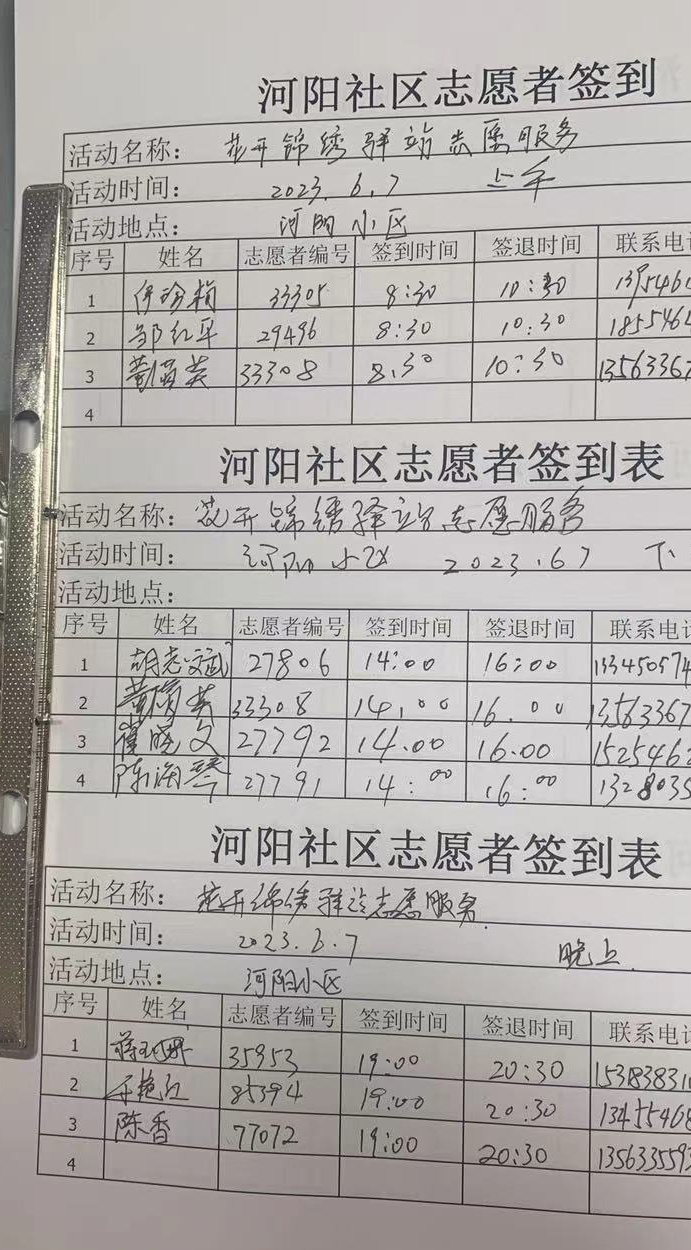 河阳社区志愿者签到
活动名称： 花开锦绣驿站志愿服务
活动时间： 2023.6.7 上午
活动地点： 河阳小区
序号 姓名 志愿者编号 签到时间 签退时间 联系电话
1 33305 8:30 10:30 1395461
2 邹红平 29496 8:30 10:30 185546
3 黄娟英 33308 8:30 10:30 13563367
4
河阳社区志愿者签到表
活动名称： 花开锦绣驿站志愿服务
活动时间： 河阳小区 2023.6 7 下
活动地点：
序号 姓名 志愿者编号 签到时间 签退时间 联系电话
1 胡志斌 27806 14:00 16:00 133450574
2 黄娟英 33308 14:00 16.00 13563367
3 崔晓文 27792 14.00 16.00 1525462
4 陈海琴 27791 14:00 16:00 1328035
河阳社区志愿者签到表
活动名称： 花开锦绣驿站志愿服务
活动时间： 2023.6.7 晚上.
活动地点： 河阳小区
序号 姓名 志愿者编号 签到时间 签退时间 联系电话
1 35953 19:00 20:30 15383831
2 于艳红 85394 19:00 20:30 13455468
3 陈香 77072 19:00 20:30 1356335593
4